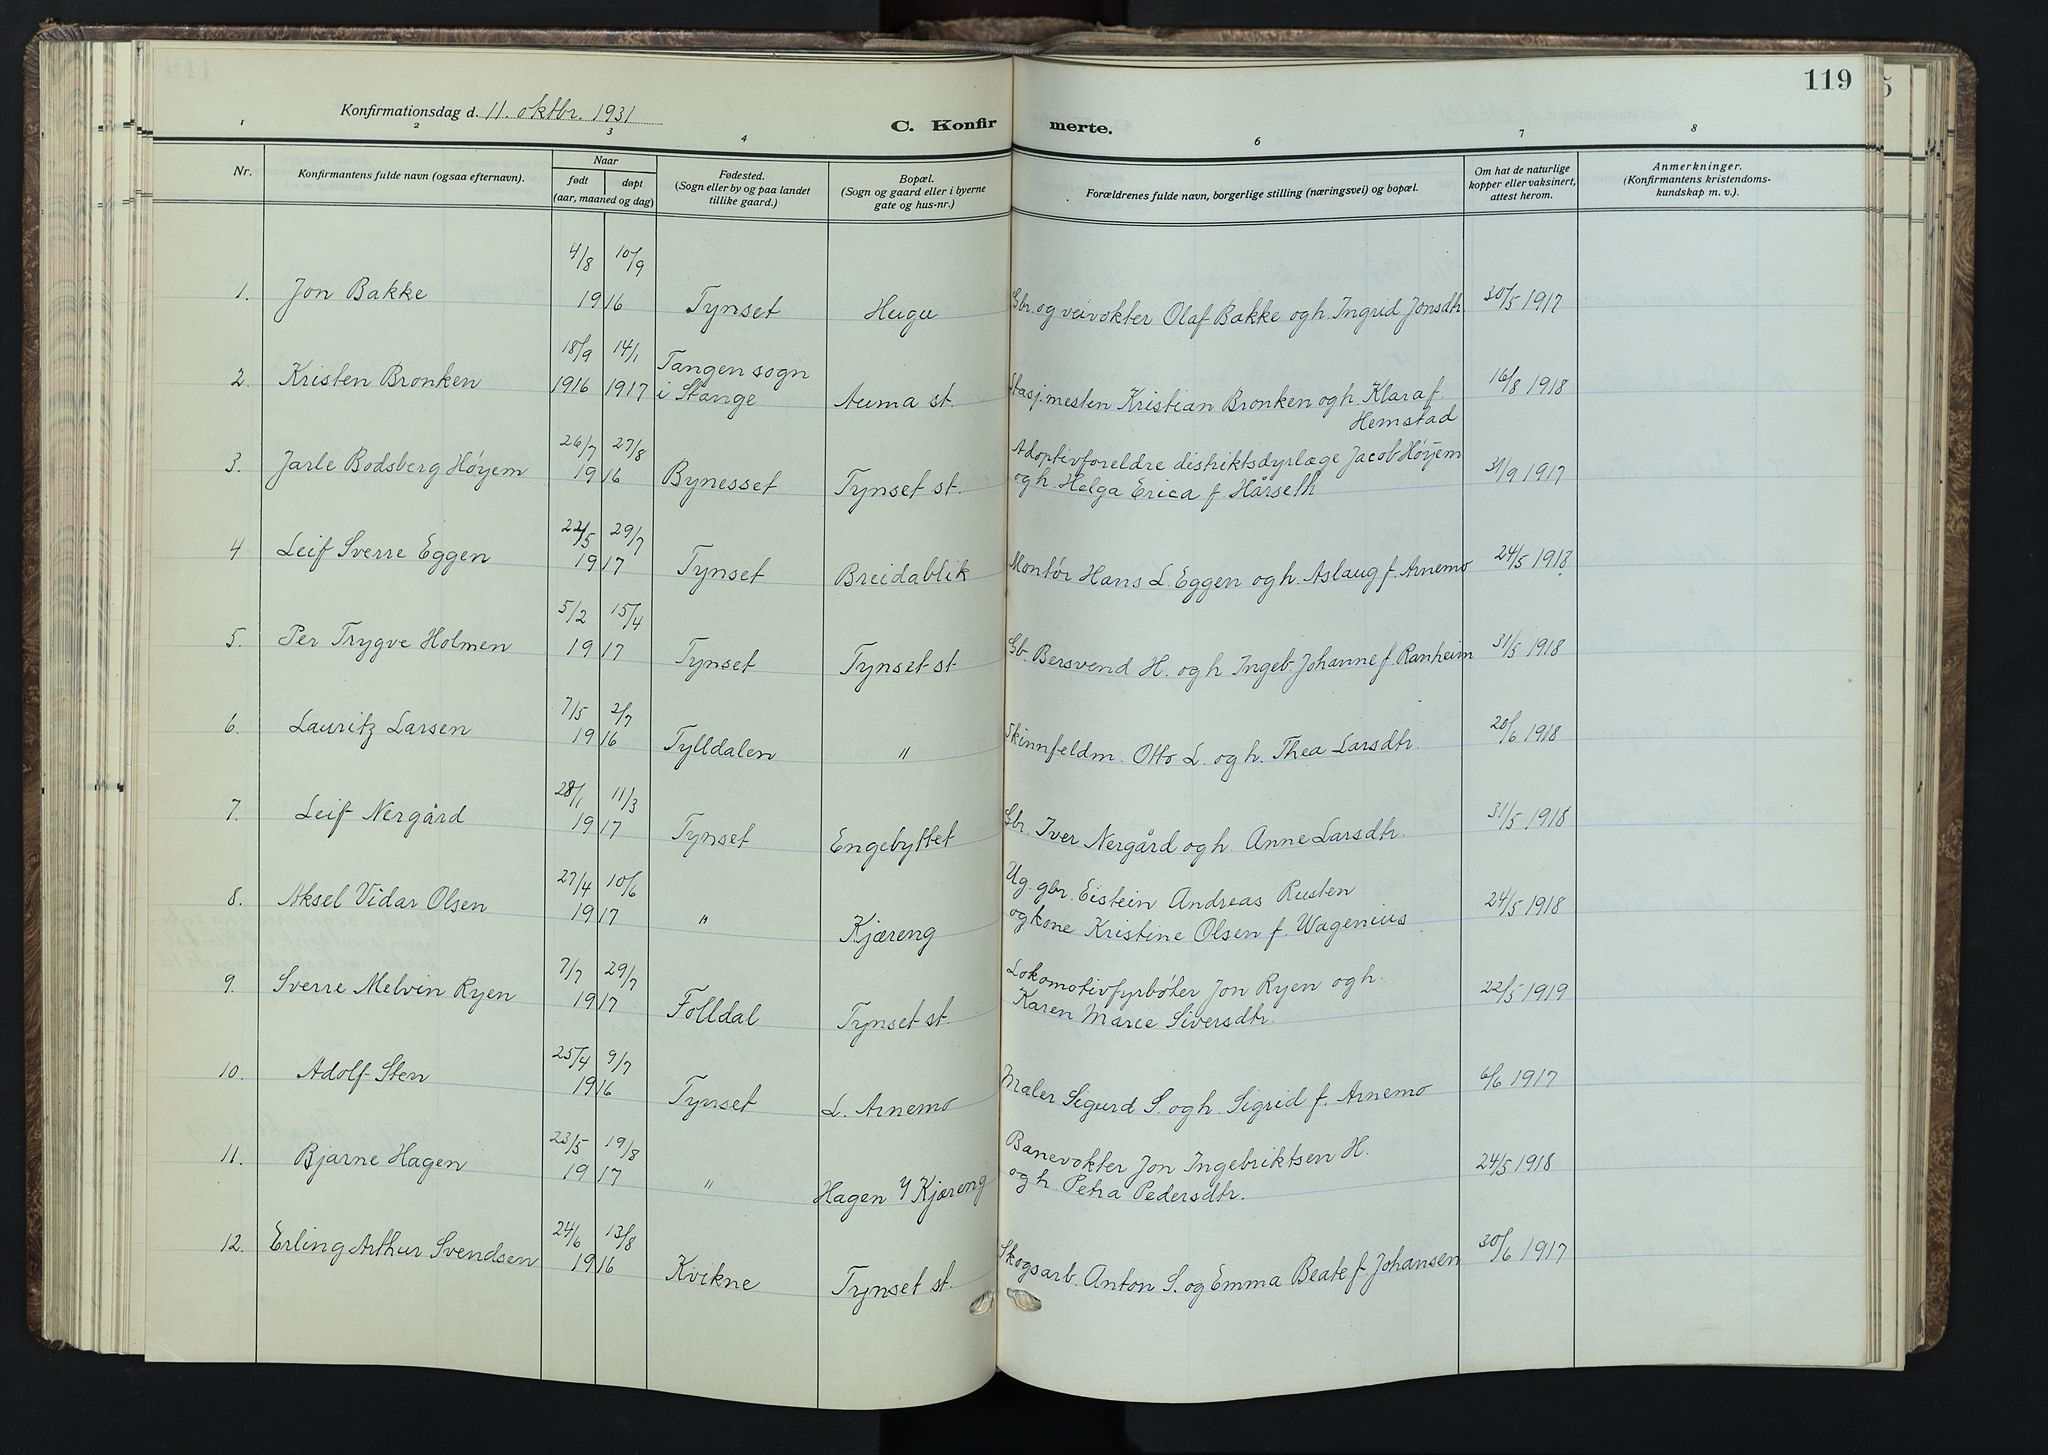 119
Konfirmationsdag d. 11. oktbr. 1931
C. Konfirmerte.
1 2 3 4 6 7 8
Nr.
Konfirmantens fulde navn (ogsaa efternavn).
Naar
født døpt
(aar, maaned og dag)
Fødested.
(Sogn eller by og paa landet
tillike gaard.)
Bopæl.
(Sogn og gaard eller i byerne
gate og hus-nr.)
Forældrenes fulde navn, borgerlige stilling (næringsvei) og bopæl.
Om hat de naturlige
kopper eller vaksinert,
attest herom.
Anmerkninger.
(Konfirmantens kristendoms-
kundskap m. v.).
4/8 10/9
1. Jon Bakke 1916 Tynset Hugu Gbr. og veivokter Olaf Bakke og h. Ingrid Jonsdtr 30/5 1917
18/9 14/1 Tangen sogn
2. Kristen Bronken 1916 1917 i Stange Auma st. Stasj.mesten Kristian Bronken og h. Klara f. 16/8 1918
Hemstad
26/7 27/8 Adoptivforeldre distriktsdyrlæge Jacob Høyem
3. Jarle Bodsberg Høyem 1916 Bynesset Tynset st. og h. Helga Erica f. Hårseth 31/9 1917
22/5 29/7
4 Leif Sverre Eggen 1917 Tynset Breidablik Montør Hans L. Eggen og h. Aslaug f. Arnemo 24/5 1918
5/2 15/4
5. Per Trygve Holmen 1917 Tynset Tynset st Gb. Bersvend H. og h Ingeb. Johanne f. Ranheim 31/5 1918
7/5 2/7
6. Lauritz Larsen 1916 Tylldalen " Skinnfeldm. Otto L. og h. Thea Larsdtr. 20/6 1918
28/1 11/3
7. Leif Nergård 1917 Tynset Engebyttet Gbr. Iver Nergård og h. Anne Larsdtr. 31/5 1918
27/4 10/6 Ug. gbr. Eistein Andreas Rusten
8. Aksel Vidar Olsen 1917 " Kjæreng og kone Kristine Olsen f. Wagenius 24/5 1918
7/7 29/7 Lokomotivfyrbøter Jon Ryen og h.
9. Sverre Melvin Ryen 1917 Folldal Tynset st. Karen Marie Siversdtr. 22/5 1919
25/4 9/7
10. Adolf Sten 1916 Tynset L. Arnemo Maler Sigurd S. og h. Sigrid f. Arnemo 6/6 1917
23/5 19/8 Banevokter Jon Ingebriktsen H.
11. Bjarne Hagen 1917 " Hagen y/ Kjæreng og h Petra Pedersdtr. 24/5 1918
24/6 13/8
12. Erling Arthur Svendsen 1916 Kvikne Tynset st. Skogsarb. Anton S. og Emma Beate f. Johansen 30/6 1917